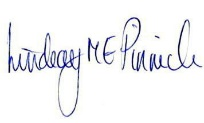 Lindsay ME Pinnick